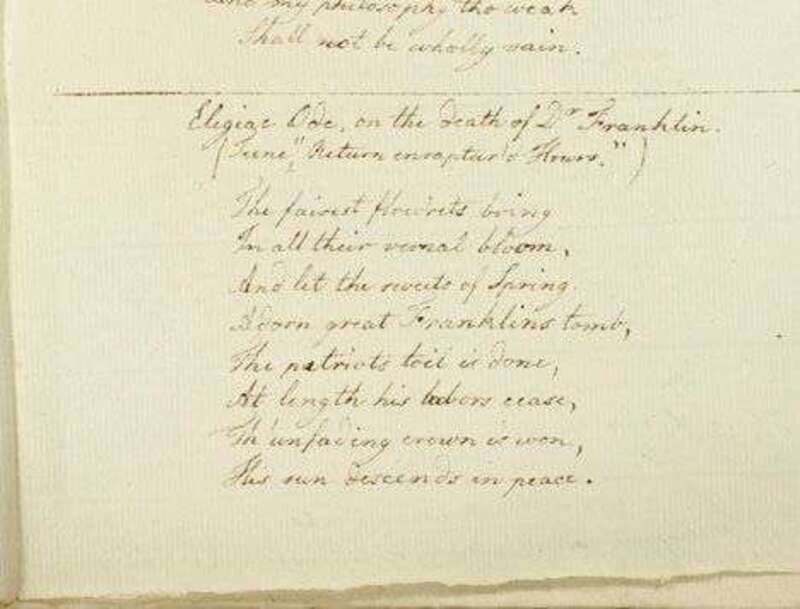 And my philosophy tho weak
Shall not be wholly vain.
Elegiac Ode, on the death of Dr Franklin.
(Tune "Return enraptur'd Hours.")
The fairest flowrets bring
In all their vernal bloom,
And let the sweets of Spring
Adorn great Franklins tomb,
The patriots toil is done,
At length his labors cease,
Th'unfading crown is won,
His sun descends in peace.